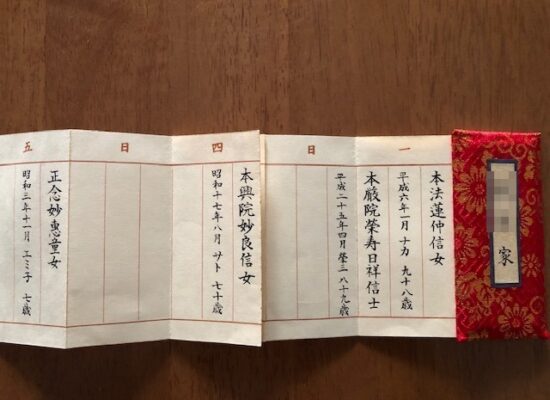 家
一日
本法蓮仲信女
平成六年一月 ナカ 九十八歳
本厳院榮寿日祥信士
平成二十五年四月 榮三 八十九歳
四日
本興院妙良信女
昭和十七年八月 サト 七十歳
五
正念妙惠童女
昭和三年十一月 エミ子 七歳